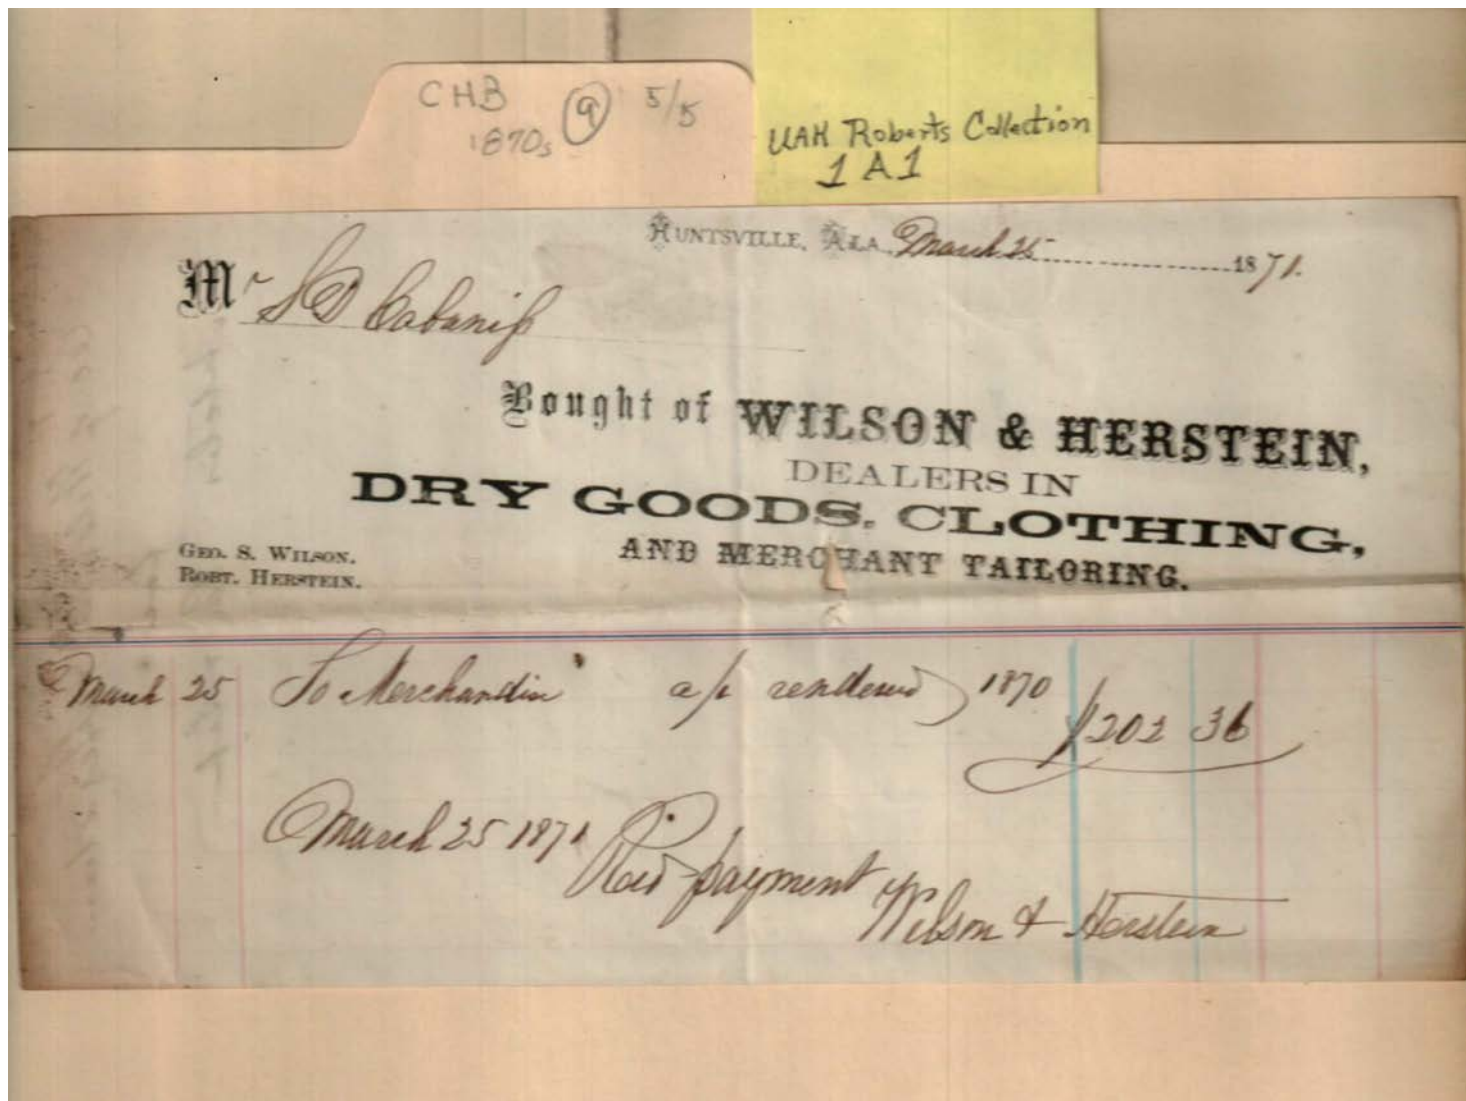 CHB ⑨ 5/5
1870s
UAH Roberts Collection
1A1
HUNTSVILLE, ALA. March 25 1871.
Mr S D Cabaniss
Bought of WILSON & HERSTEIN,
DEALERS IN
DRY GOODS, CLOTHING,
AND MERCHANT TAILORING.
GEO. S. WILSON.
ROBT. HERSTEIN.
March 25 To Merchandise a/c rendered 1870 $202 36
March 25 1871 Recd payment
Wilson & Herstein